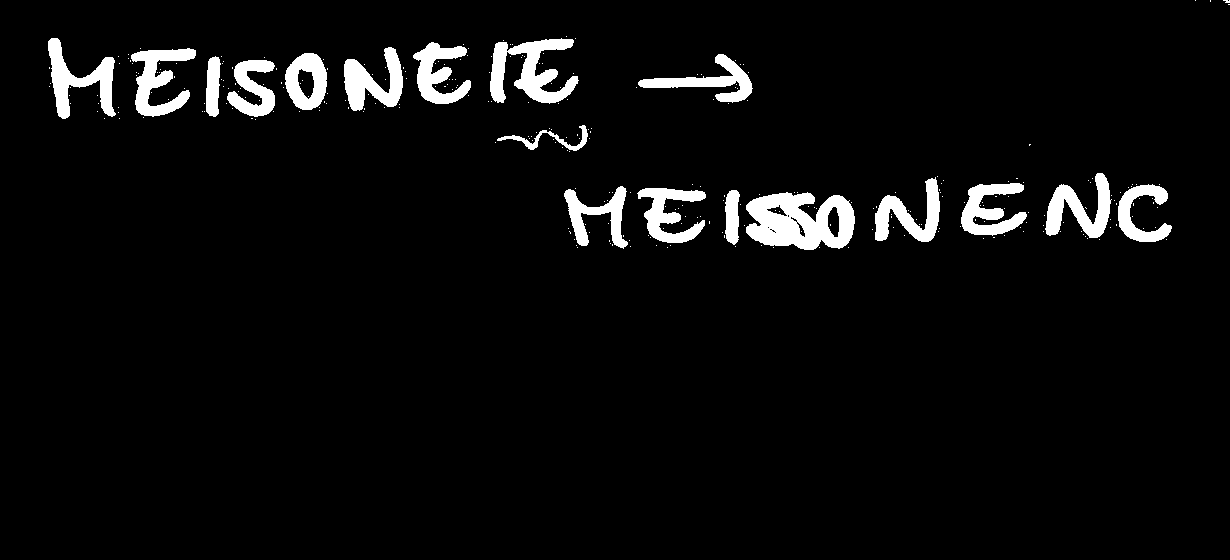 MEISONEIE →
MEISSONENC